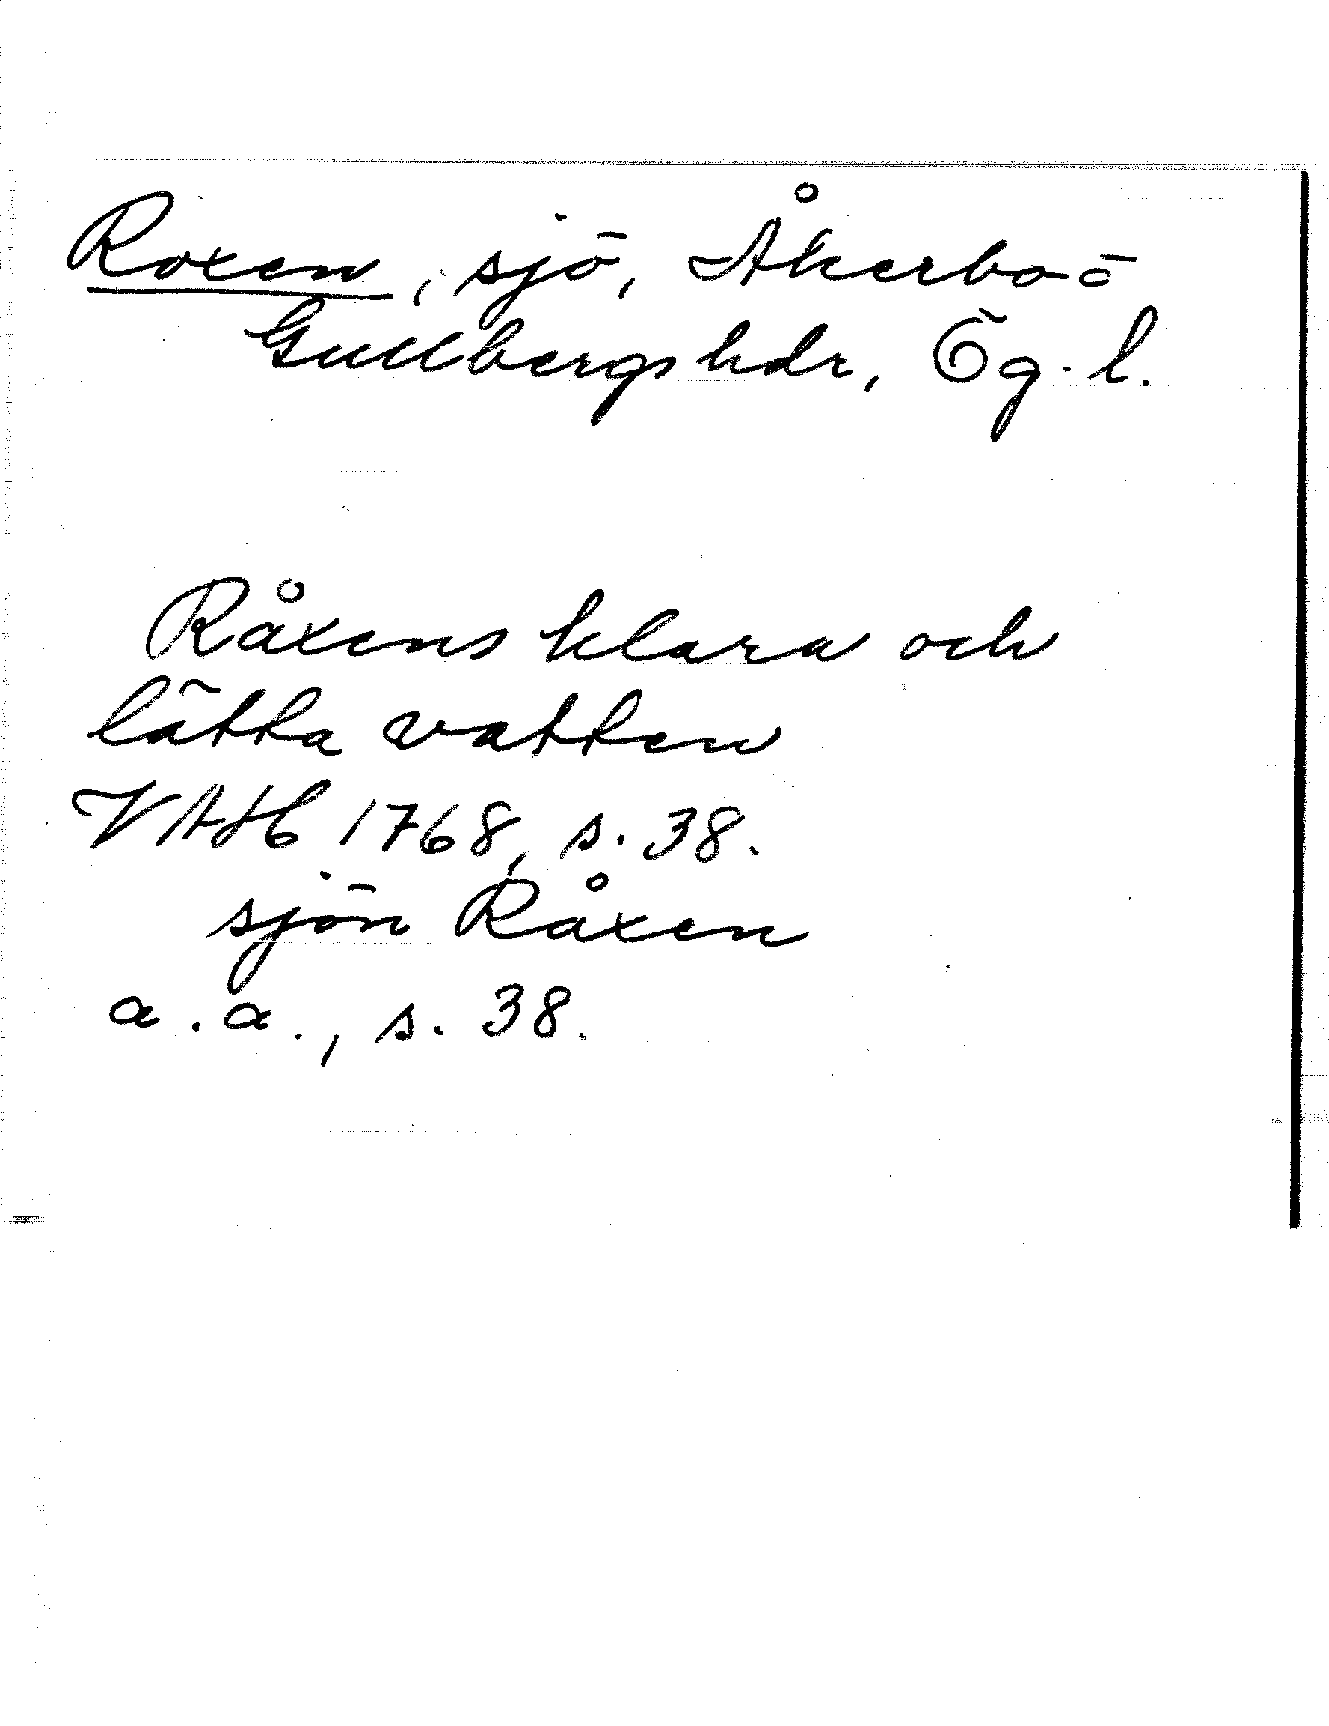 Roxen, sjö, Åkerbo ō
Gullbergs hdr, Ög. l.
Råxens klara och
lätta vatten
VAH 1768, s. 38.
sjön Råxen
a.a., s. 38.